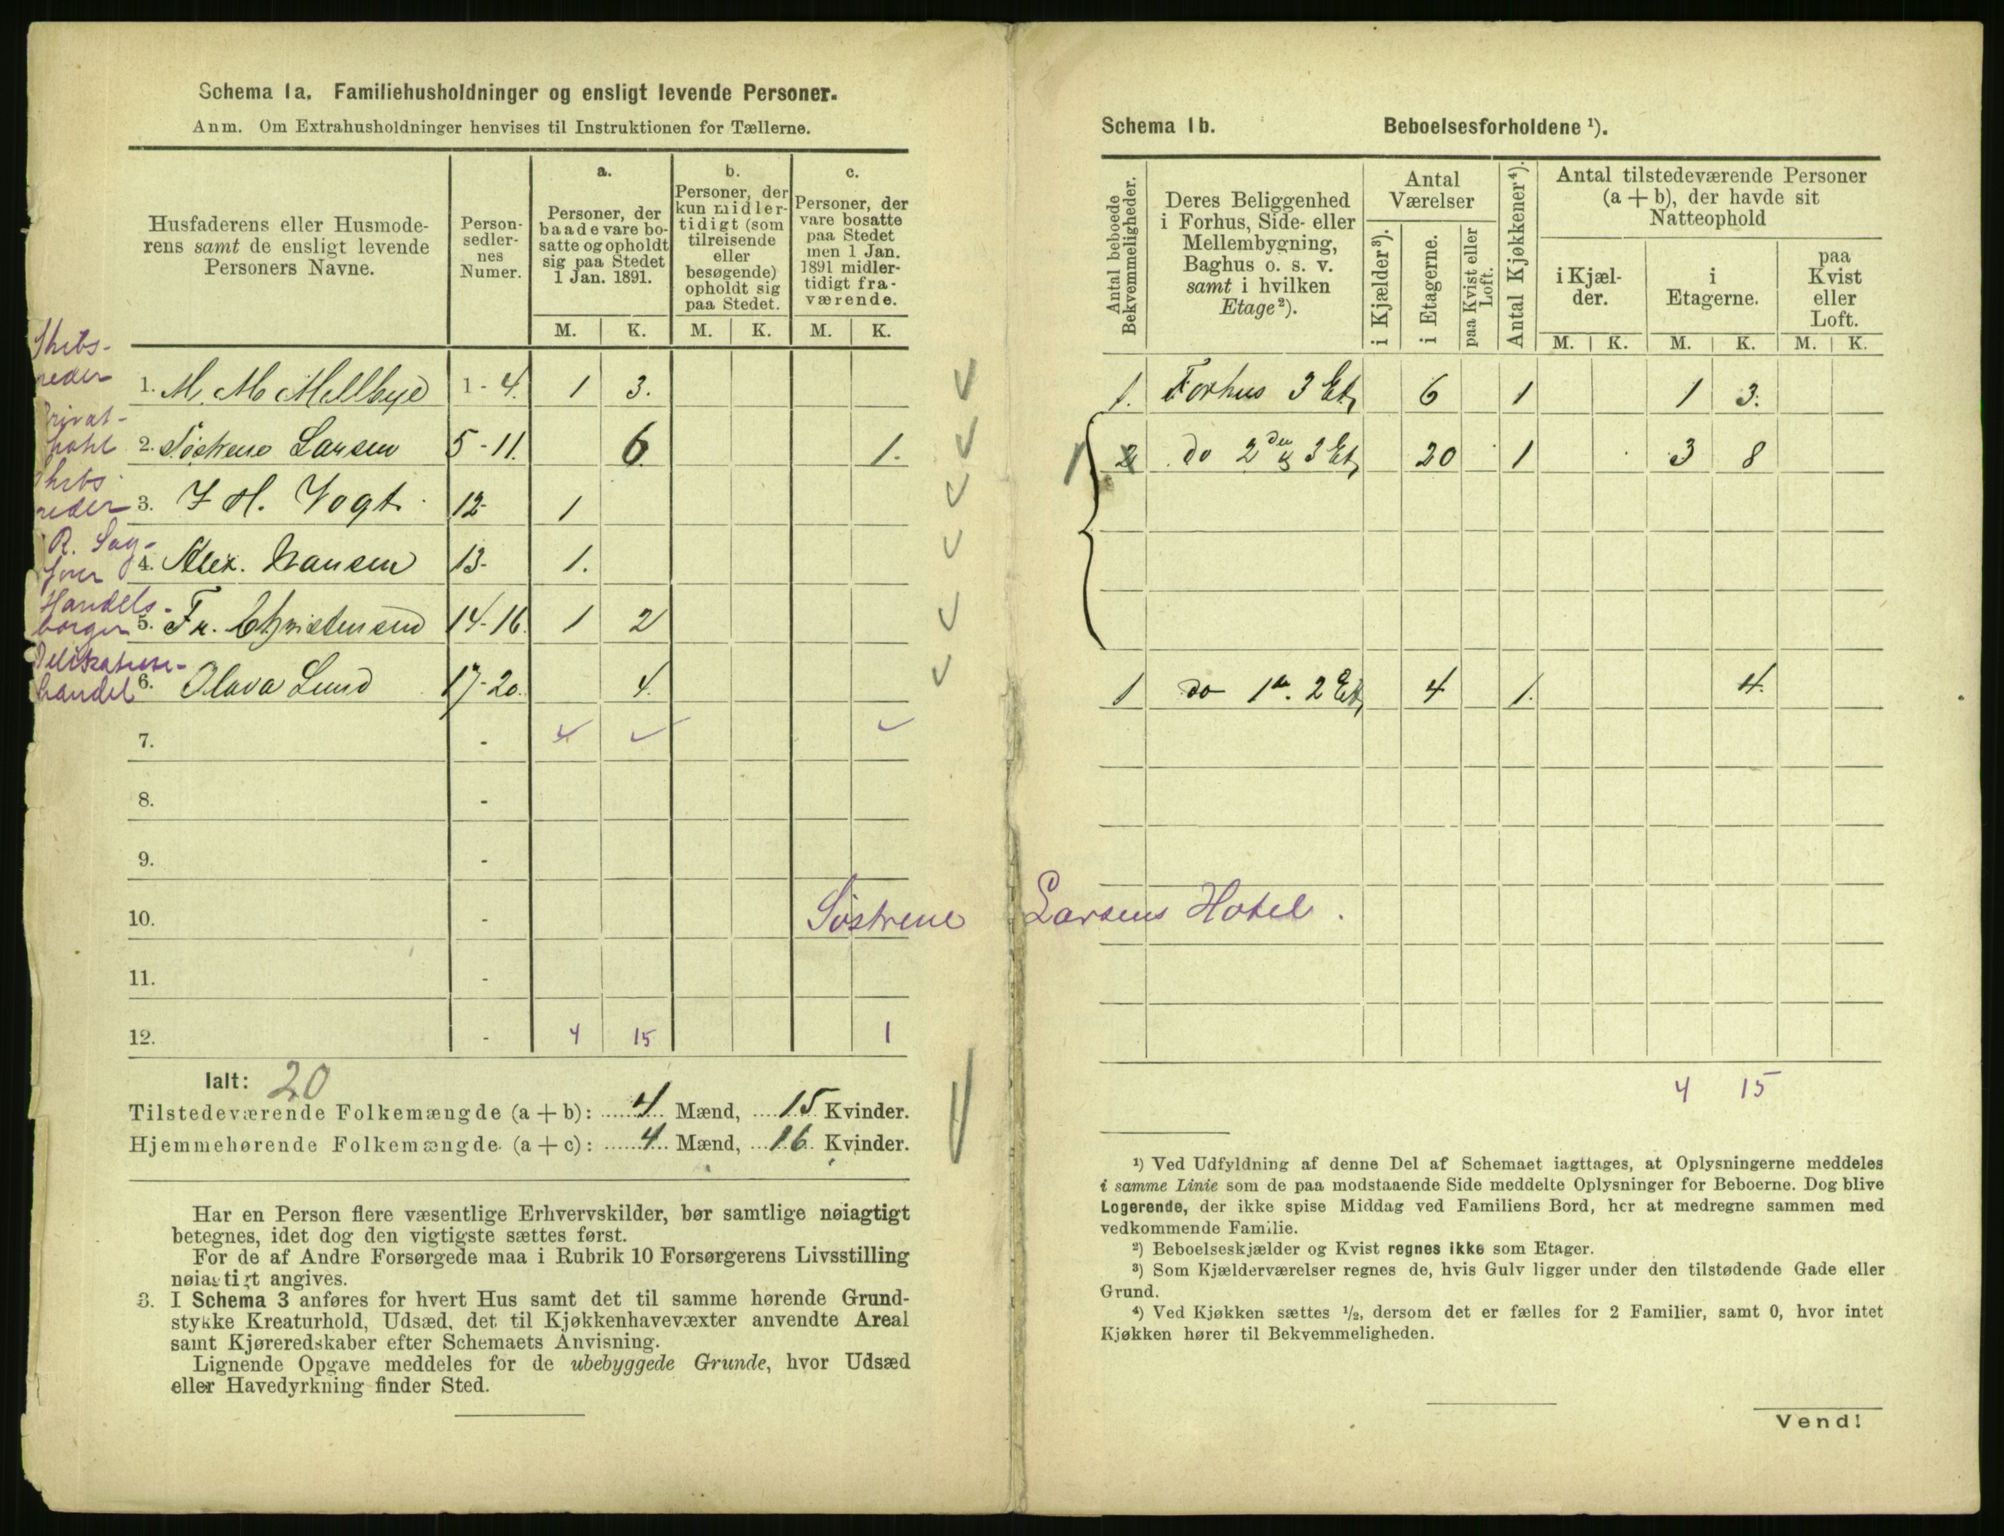 Schema 1a. Familiehusholdninger og ensligt levende Personer.
Anm. Om Extrahusholdninger henvises til Instruktionen for Tællerne.
Husfaderens eller Husmoderens samt de ensligt levende Personers Navne.
Personsedlernes Numer.
a.
Personer, der baade vare bosatte og opholdt sig paa Stedet 1 Jan. 1891.
b.
Personer, der kun midlertidigt (som tilreisende eller besøgende) opholdt sig paa Stedet.
c.
Personer, der vare bosatte paa Stedet men 1 Jan. 1891 midlertidigt fraværende.
M. K. M. K. M. K.
Skibsreder
1. M. M. Mellbye 1 - 4. 1 3.
Privathotel
2. Søstrene Larsen 5 - 11. 6. 1.
Skibsreder
3. J. H. Vogt. 12 - 1
O. Sagfører
4. Alex. Hansen 13 - 1.
Handelsborger
5. Fr. Christensen 14 - 16. 1 2
Delikatessehandel
6. Olava Lund 17 - 20. 4.
7. -
8. -
9. -
10. -
11. -
12. - 4 15 1
Søstrene Larsens Hotel.
Ialt: 20
Tilstedeværende Folkemængde (a + b): 4 Mænd, 15 Kvinder.
Hjemmehørende Folkemængde (a + c): 4 Mænd, 16 Kvinder.
Har en Person flere væsentlige Erhvervskilder, bør samtlige nøiagtigt
betegnes, idet dog den vigtigste sættes først.
For de af Andre Forsørgede maa i Rubrik 10 Forsørgerens Livsstilling
nøiagtigt angives.
3. I Schema 3 anføres for hvert Hus samt det til samme hørende Grund-
stykke Kreaturhold, Udsæd, det til Kjøkkenhavevæxter anvendte Areal
samt Kjøreredskaber efter Schemaets Anvisning.
Lignende Opgave meddeles for de ubebyggede Grunde, hvor Udsæd
eller Havedyrkning finder Sted.
Schema 1b. Beboelsesforholdene ¹).
Antal beboede Bekvemmeligheder.
Deres Beliggenhed i Forhus, Side- eller Mellembygning, Baghus o. s. v. samt i hvilken Etage²).
Antal Værelser
i Kjælder³).
i Etagerne.
paa Kvist eller Loft.
Antal Kjøkkener⁴).
Antal tilstedeværende Personer (a + b), der havde sit Natteophold
i Kjælder.
i Etagerne.
paa Kvist eller Loft.
M. K. M. K. M. K.
1. Forhus 3 Et. 6 1 1 3.
1 2 do 2den & 3 Et. 20 1 3 8
1 do 1ste. 2 Et. 4 1. 4.
4 15
¹) Ved Udfyldning af denne Del af Schemaet iagttages, at Oplysningerne meddeles
i samme Linie som de paa modstaaende Side meddelte Oplysninger for Beboerne. Dog blive
Logerende, der ikke spise Middag ved Familiens Bord, her at medregne sammen med
vedkommende Familie.
²) Beboelseskjælder og Kvist regnes ikke som Etager.
³) Som Kjælderværelser regnes de, hvis Gulv ligger under den tilstødende Gade eller
Grund.
⁴) Ved Kjøkken sættes ½, dersom det er fælles for 2 Familier, samt 0, hvor intet
Kjøkken hører til Bekvemmeligheden.
Vend!